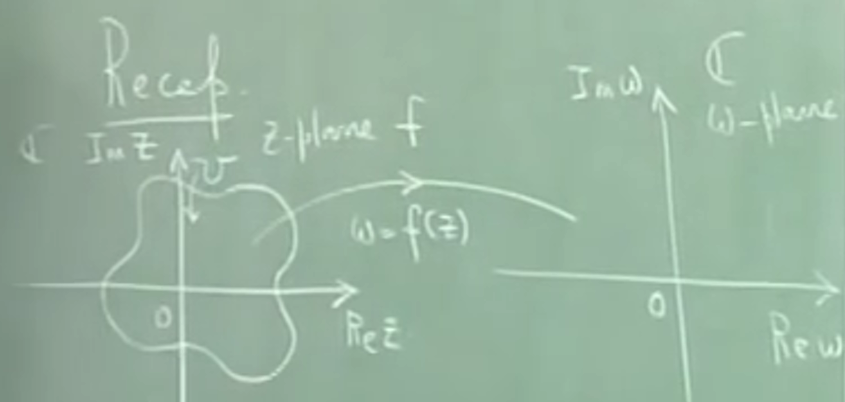 Recap.
ℂ Im z z-plane f
U
ω = f(z)
0
Re z
Im ω ℂ
ω-plane
0
Re ω